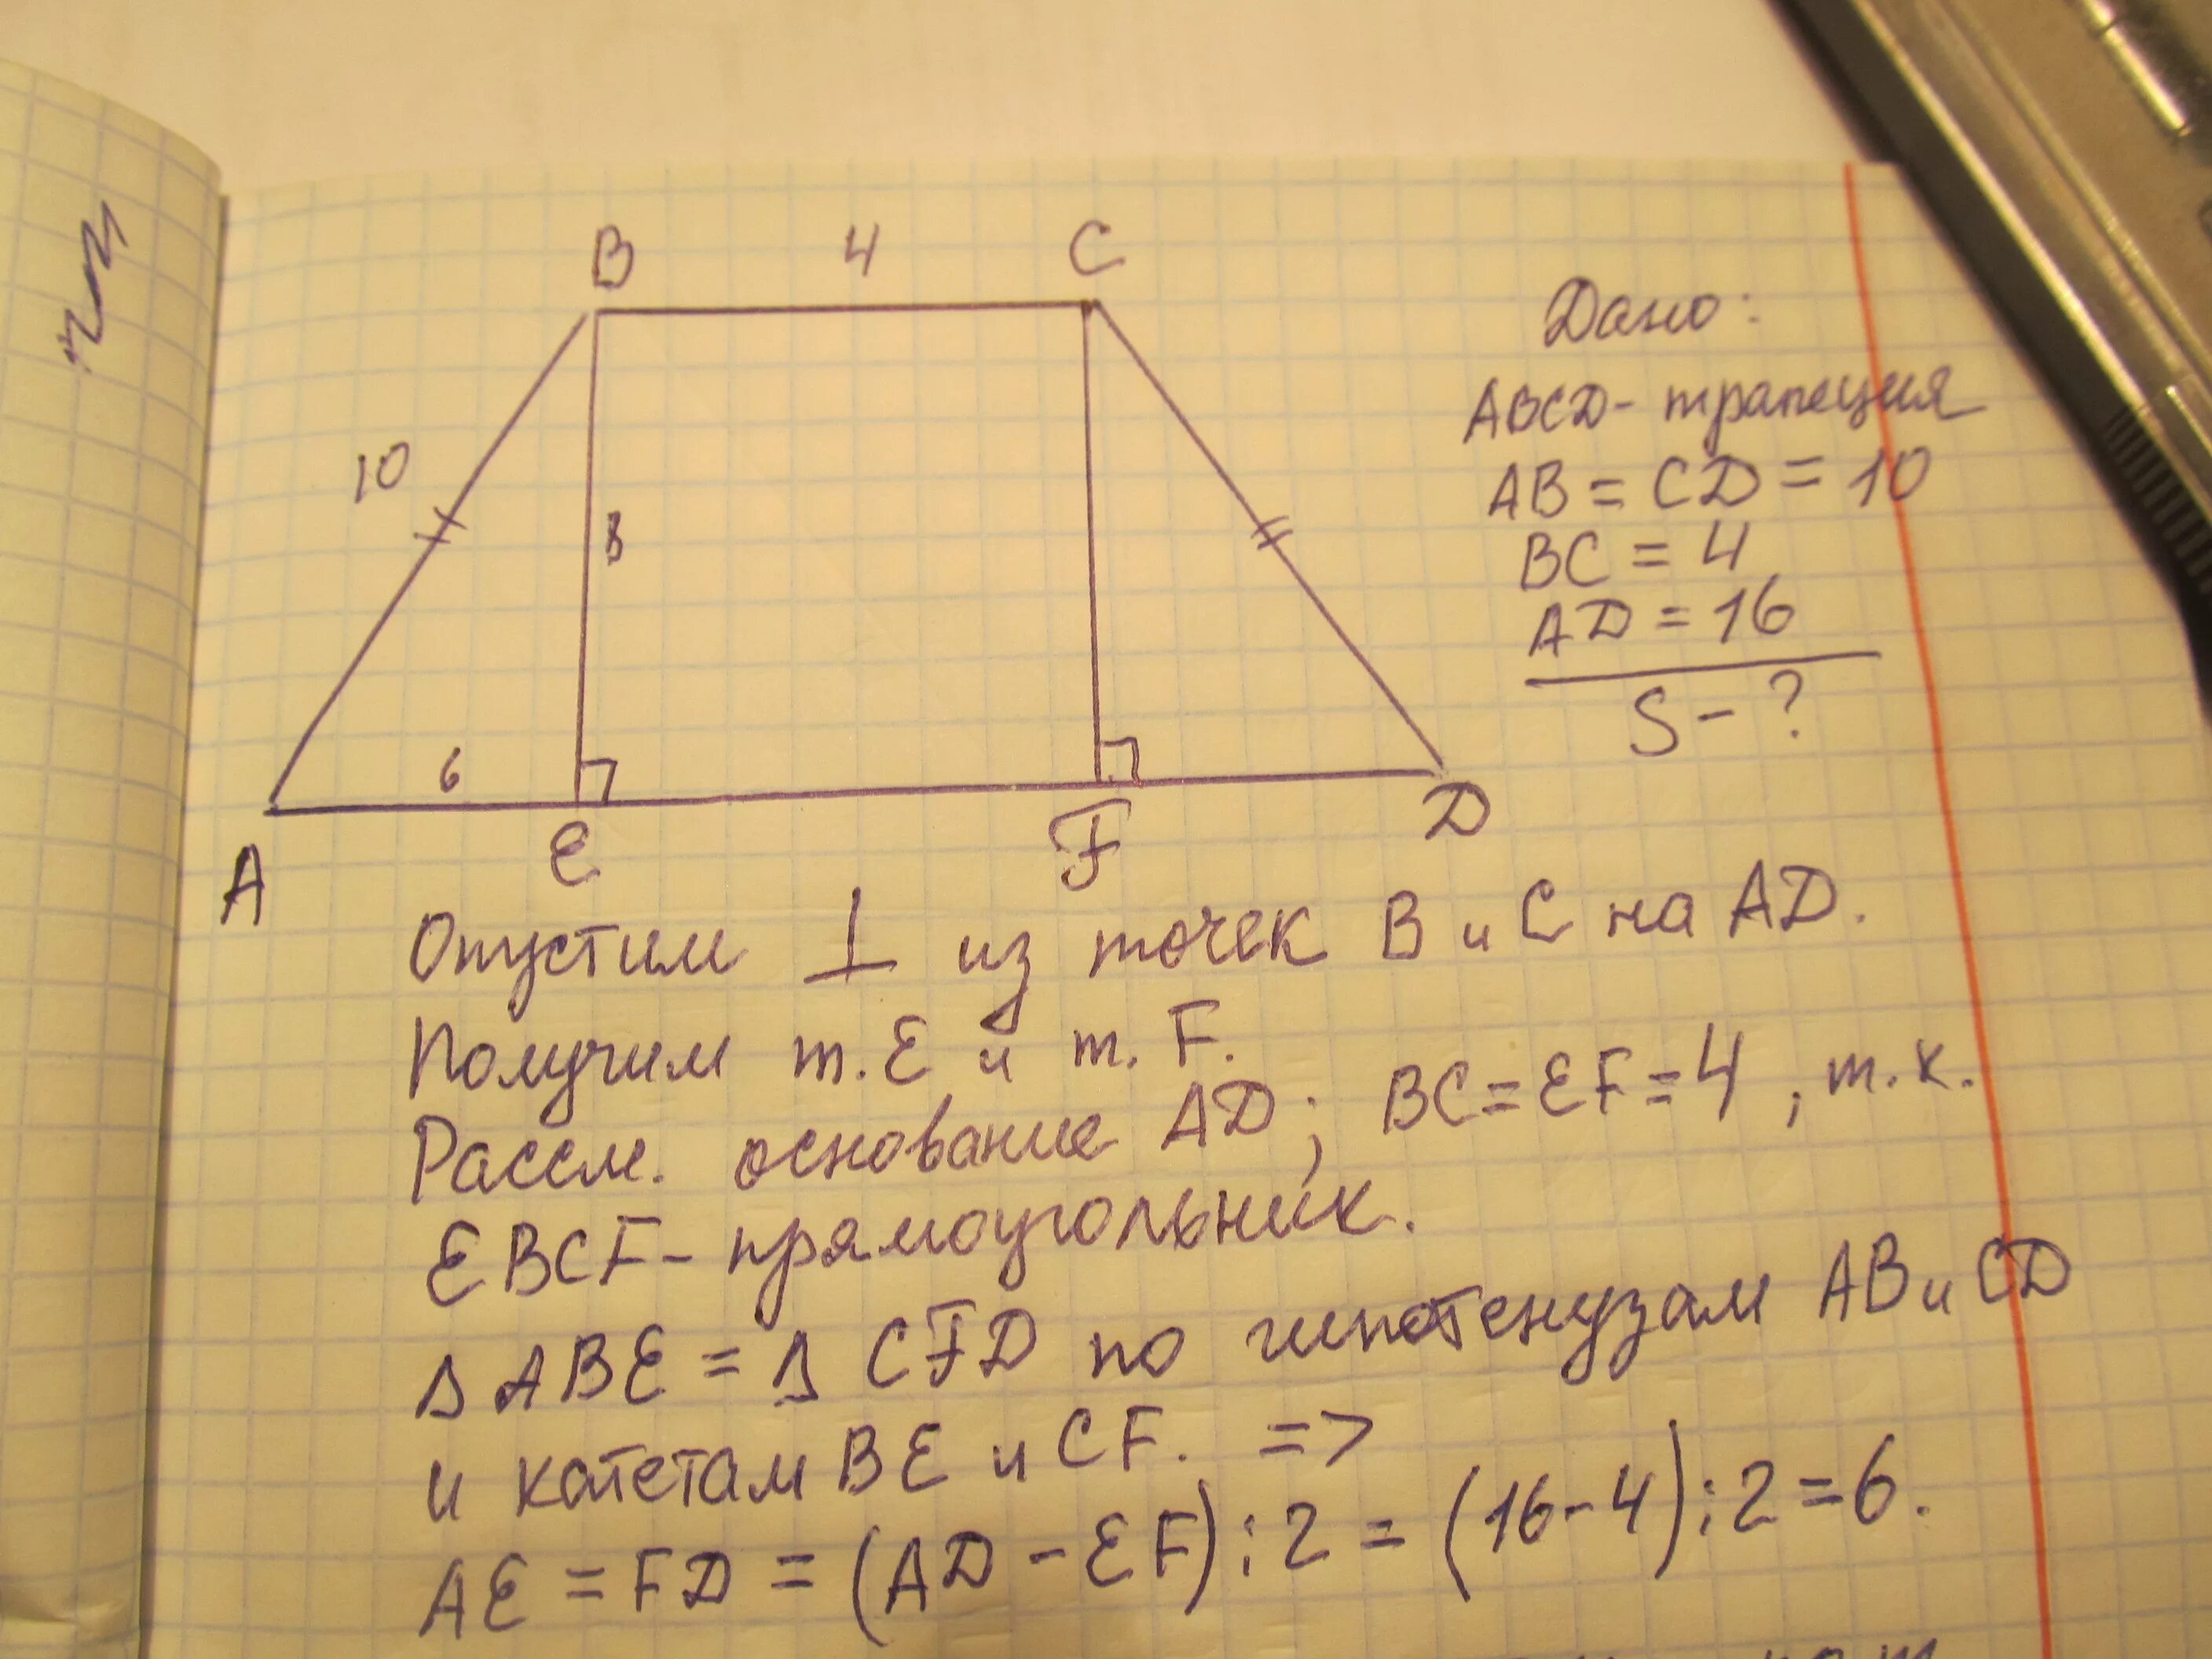 B 4 C
Дано:
ABCD - трапеция
10
AB = CD = 10
8
BC = 4
AD = 16
S - ?
6
A E F D
Опустим ⊥ из точек B и C на AD.
Получим т. E и т. F.
Рассм. основание AD; BC = EF = 4, т.к.
EBCF - прямоугольник.
Δ ABE = Δ CFD по гипотенузам AB и CD
и катетам BE и CF. =>
AE = FD = (AD - EF) : 2 = (16 - 4) : 2 = 6.